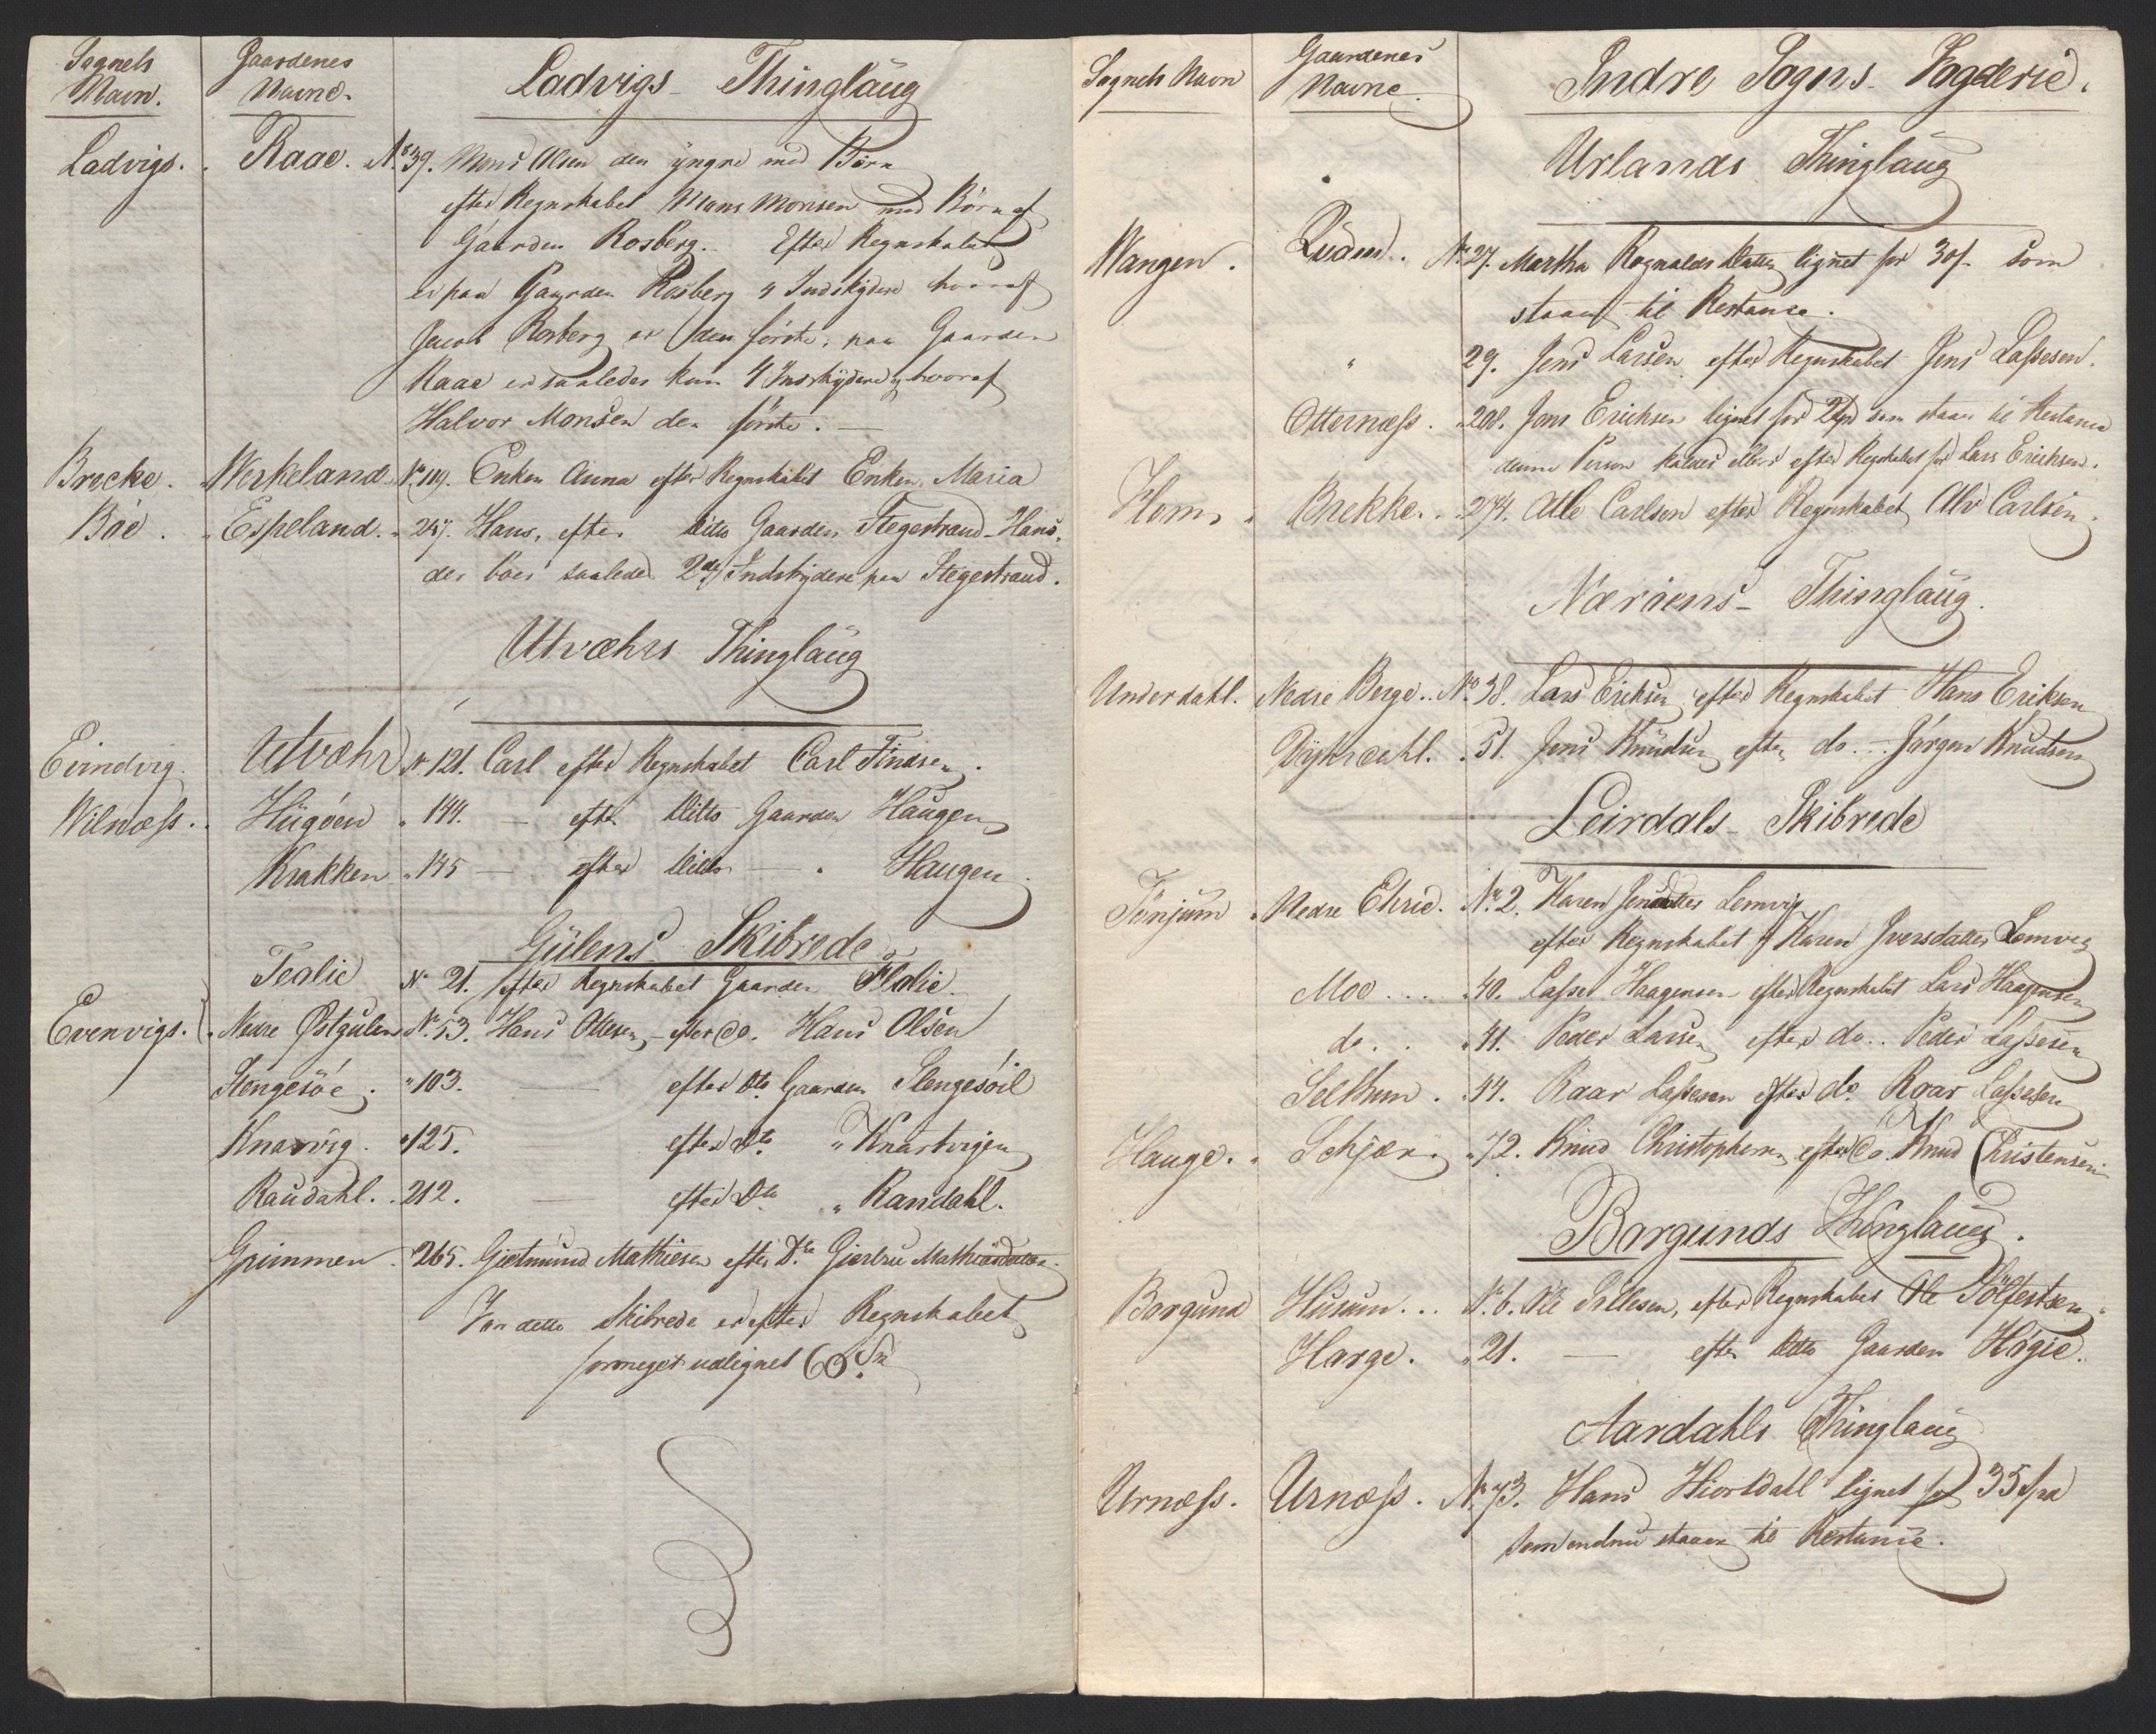 Sognets Navn. Gaardenes Navne. Ladvigs Thinglaug
Ladvigs. Raae. No 39. Mons Olsen den yngre med Børn
efter Regnskabet Mons Monsen med Børn af
Gaarden Rosberg. Efter Regnskabet
er paa Gaarden Rosberg 4 Indskydere hvoraf
Jacob Rosberg er den første, paa Gaarden
Raae er saaledes kun 4 Indskydere, hvoraf
Halvor Monsen den første. —
Brecke. Werkeland. No 119. Enken Anna efter Regnskabet Enken Maria
Böe. Espeland. " 247. Hans, efter Ditto Gaarden Stegestrand Hans,
der boer saaledes 2de Indskydere paa Stegestrand.
Utvæhrs Thinglaug
Eivindvig. Utvæhr No 121. Carl efter Regnskabet Carl Finasen.
Wilnæss. Hügöen " 144. — efter Ditto Gaarden Haugen
Krakken " 145 — efter Ditto — " Haugen.
Gülens Skibrede
Tealie No 21. efter Regnskabet Gaarden Flolie.
Evenvigs. Nedre Østgulen No 53. Hans Ottesen, efter do. Hans Olsen
Stengesöe. " 103. — efter Dto Gaarden Slengesöil
Knarvig. " 125. efter Dto " Knartvigen
Raudahl. " 212. — efter Dto " Randahl.
Grimmen. " 265. Gietmund Mathiesen efter Dto Giertru Mathiasdatter.
I dette Skibrede er efter Regnskabet
formeget udlignet 60 Sp.
Sognets Navn Gaardenes Navne. Indre Sogns Fogderie.
Urlands Thinglaug
Wangen. No 27. Martha Rognalds Datter lignet for 30 s. som
staaer til Restance.
" 29. Jens Larsen efter Regnskabet Jens Lassesen.
Otternæss. " 208. Jens Erichsen lignet for 2 Spd som staaer til Restance
denne Person kaldes ellers efter Regnskabet for Lars Erichsen.
Flom. " Brekke. " 274. Atle Carlsen efter Regnskabet Alv Carlsen.
Næriens Thinglaug.
Underdahl. Nedre Berge. No 38. Lars Erichsen efter Regnskabet Hans Eriksen
Dyhrdahl. " 51. Jens Knudsen efter do. — Jörgen Knudsen
Leirdals Skibrede
Tönjum. Nedre Ehrie. No 2. Karen Jensdatter Lemvig
efter Regnskabet Karen Iversdatter Lemvig
Moe .... " 40. Lasse Haagensen efter Regnskabet Lars Haagensen
do. .. " 41. Peder Larsen efter do. Peder Lassesen
Selthun. " 44. Raar Lassesen efter do. Roar Lassesen
Hauge. " Schjær. " 72. Knud Christophersen efter do. Knud Christensen
Borgunds Thinglaug.
Borgund Husum... No 6. Ole Sillesen, efter Regnskabet Ole Sölfestsen.
Harge. " 21. — efter Ditto Gaarden Högie.
Aardahls Thinglaug
Urnæss. Urnæss. No 73. Hans Hiortdahl lignet for 35 Spd
som endnu staaer til Restance.